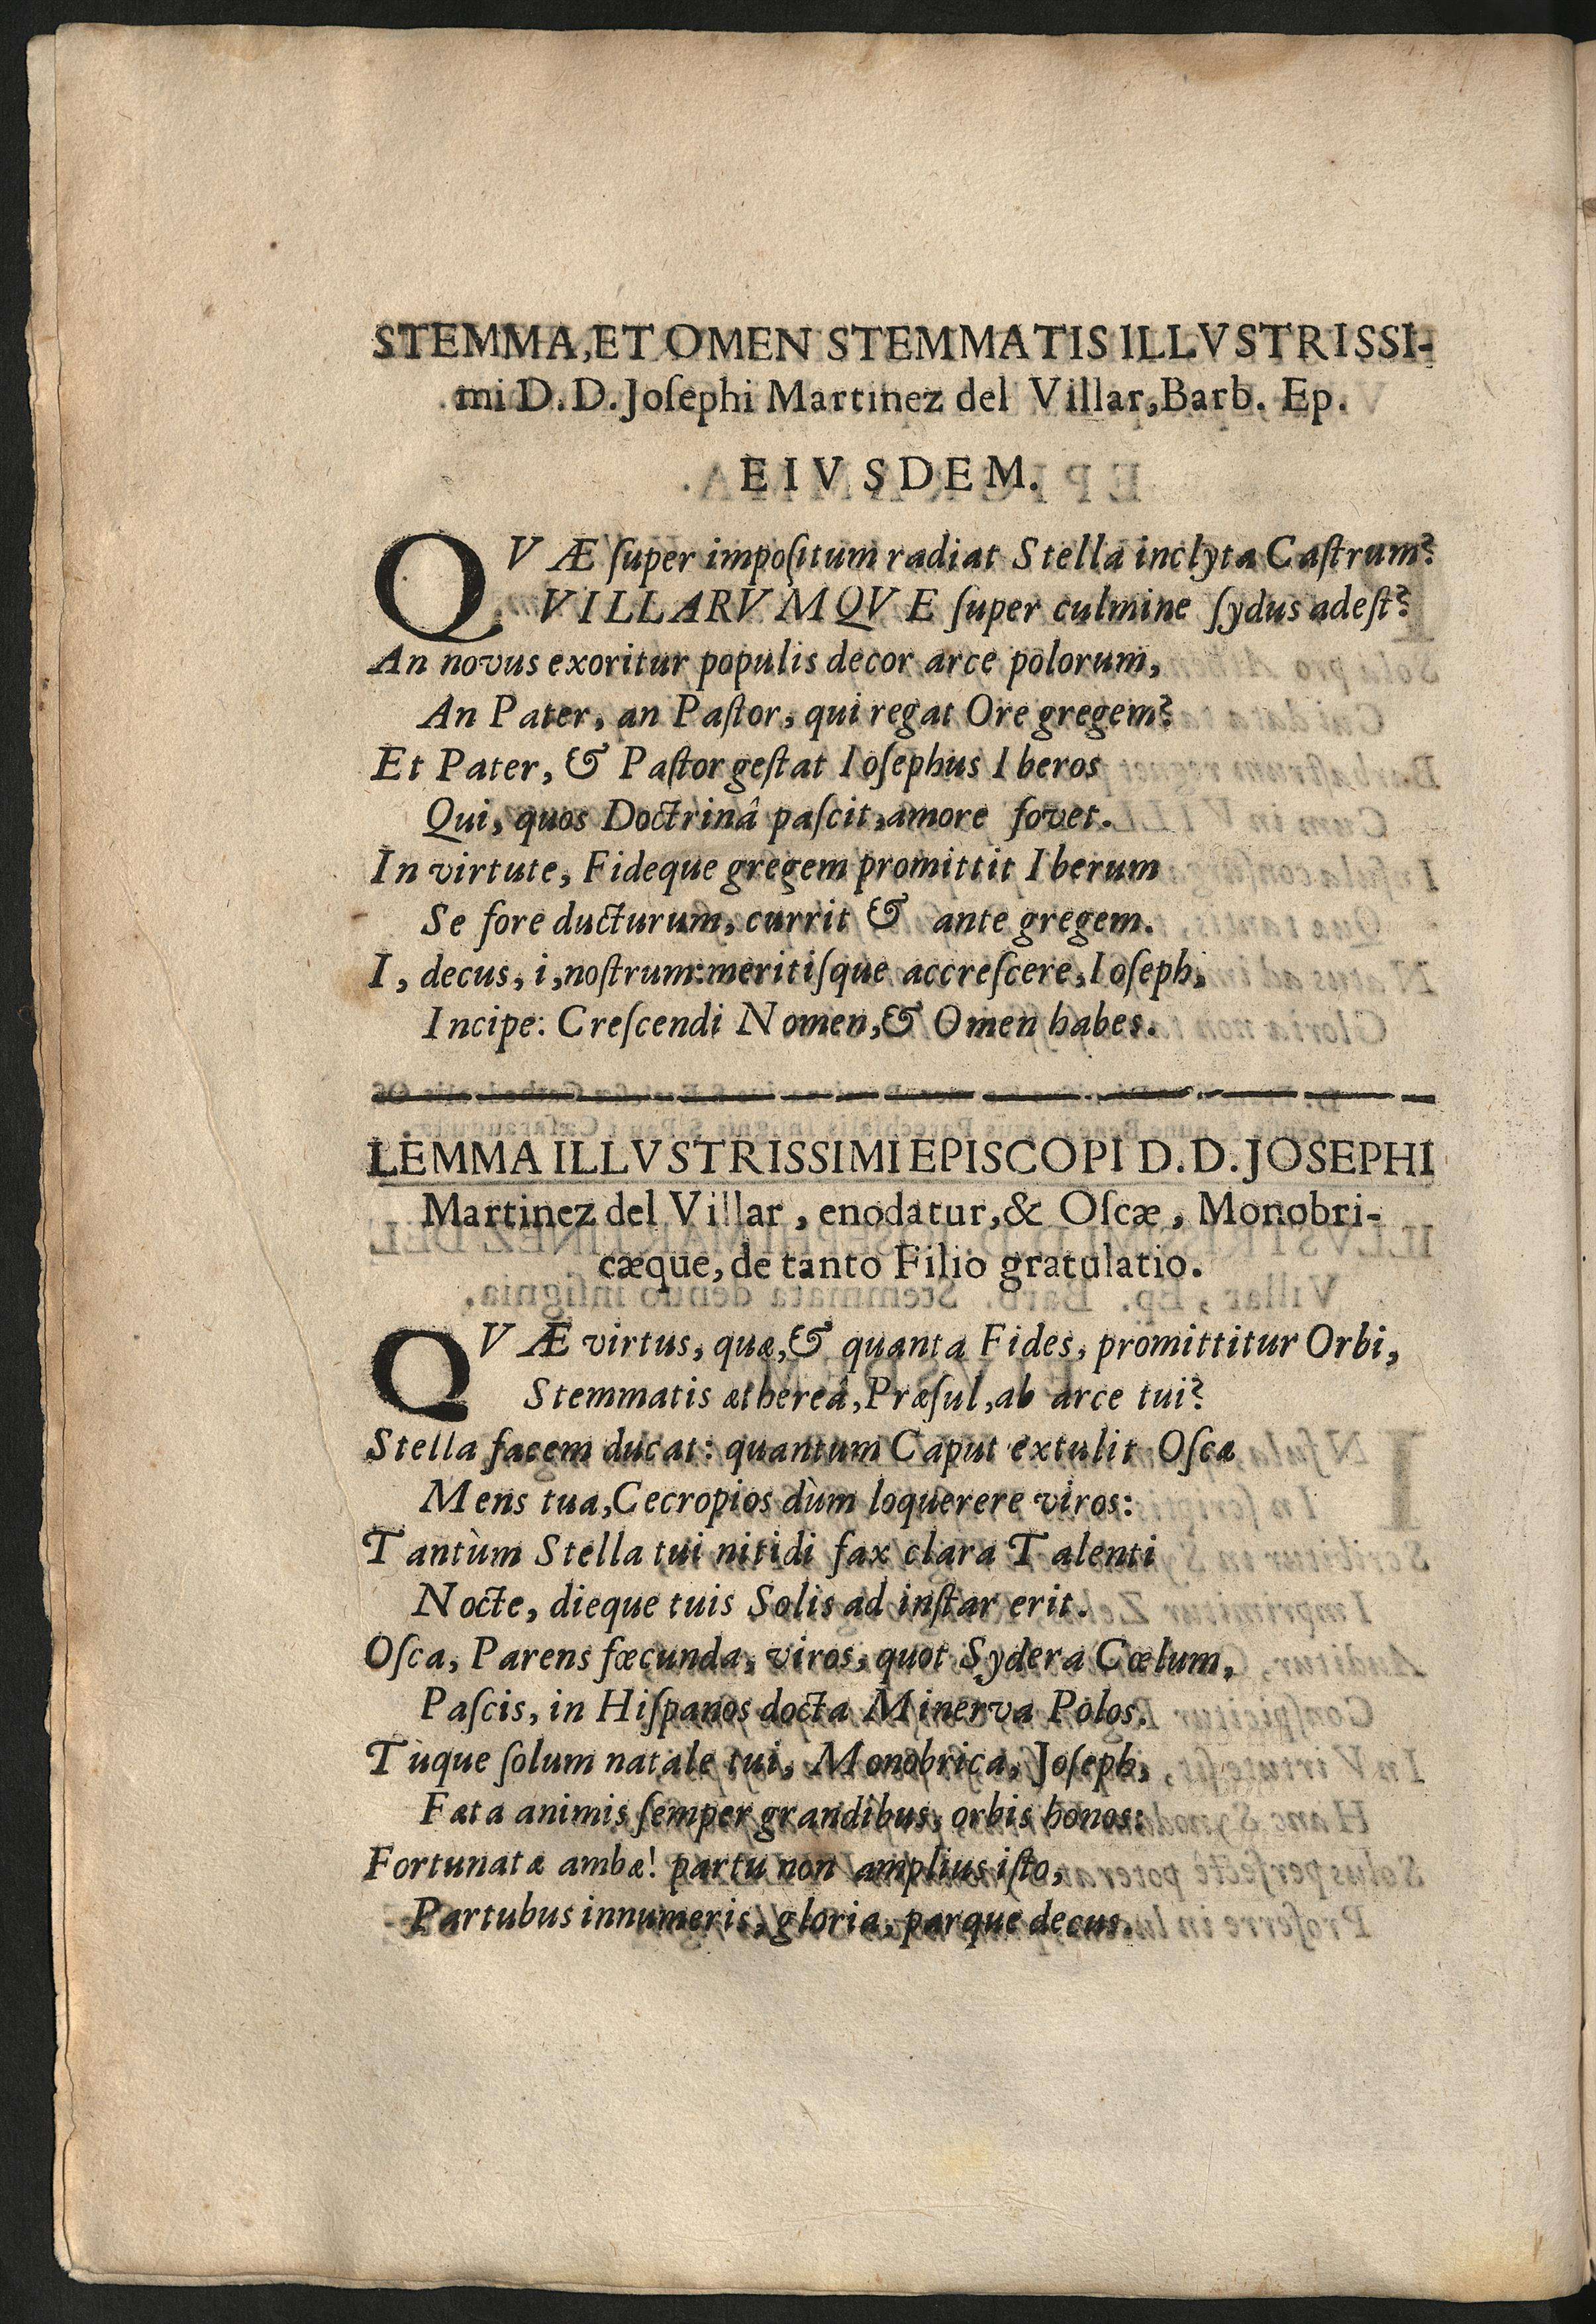 STEMMA, ET OMEN STEMMATIS ILLVSTRISSI-
mi D. D. Joſephi Martinez del Villar, Barb. Ep.
EIVSDEM.
QVÆ ſuper impoſitum radiat Stella inclyta Caſtrum?
VILLARVMQVE ſuper culmine ſydus adeſt?
An novus exoritur populis decor arce polorum,
An Pater, an Paſtor, qui regat Ore gregem?
Et Pater, & Paſtor geſtat Ioſephus Iberos
Qui, quos Doctrinâ paſcit, amore fovet.
In virtute, Fideque gregem promittit Iberum
Se fore ducturum, currit & ante gregem.
I, decus, i, noſtrum: meritiſque accreſcere, Ioſeph,
Incipe: Creſcendi Nomen, & Omen habes.
LEMMA ILLVSTRISSIMI EPISCOPI D. D. JOSEPHI
Martinez del Villar, enodatur, & Oſcæ, Monobri-
cæque, de tanto Filio gratulatio.
QVÆ virtus, quæ, & quanta Fides, promittitur Orbi,
Stemmatis æthereâ, Præſul, ab arce tui?
Stella facem ducat: quantum Caput extulit Oſcæ
Mens tua, Cecropios dùm loquerere viros:
Tantùm Stella tui nitidi fax clara Talenti
Nocte, dieque tuis Solis ad inſtar erit.
Oſca, Parens fœcunda, viros, quot Sydera Cœlum,
Paſcis, in Hiſpanos docta Minerva Polos.
Tùque ſolum natale tui, Monobrica, Joſeph,
Fæta animis ſemper grandibus, orbis honos:
Fortunatæ ambæ! partu non amplius iſto,
Partubus innumeris, gloria, parque decus.